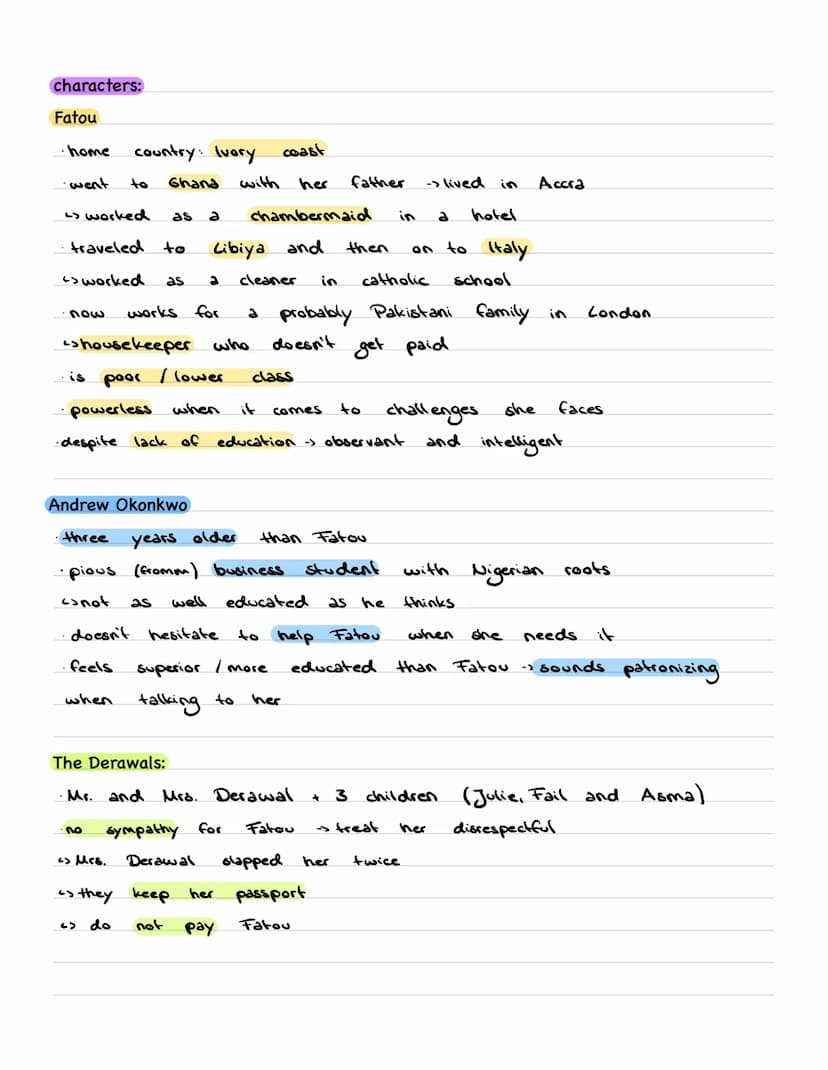 characters:
Fatou
· home country: Ivory coast
· went to Ghana with her father -> lived in Accra
↳ worked as a chambermaid in a hotel
· traveled to Libiya and then on to Italy
↳ worked as a cleaner in catholic school
· now works for a probably Pakistani family in London
↳ housekeeper who doesn't get paid
· is poor / lower class
· powerless when it comes to challenges she faces
· despite lack of education -> observant and intelligent
Andrew Okonkwo
· three years older than Fatou
· pious (fromm) business student with Nigerian roots
↳ not as well educated as he thinks
· doesn't hesitate to help Fatou when she needs it
· feels superior / more educated than Fatou -> sounds patronizing
when talking to her
The Derawals:
· Mr. and Mrs. Derawal + 3 children (Julie, Fail and Asma)
· no sympathy for Fatou -> treat her disrespectful
↳ Mrs. Derawal slapped her twice
↳ they keep her passport
↳ do not pay Fatou